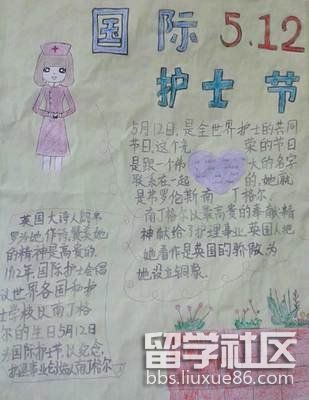 国际5.12
护士节
5月12日,是全世界护士的共同
节日,这个光荣的节日
是跟一个伟大的名字
联系在一起的,她就
是弗罗伦斯·南丁格尔。
南丁格尔以最高贵的奉献精神
精神献给了护理事业,英国人把
她看作是英国的骄傲为
她设立铜象。
英国大诗人
罗
的精神是高贵的
1912年国际护士会倡
议世界各国和护
士学校以南丁格
尔的生日5月12日
为国际护士节以纪念
护理事业创始人南丁格尔
留学社区
bbs.liuxue86.com